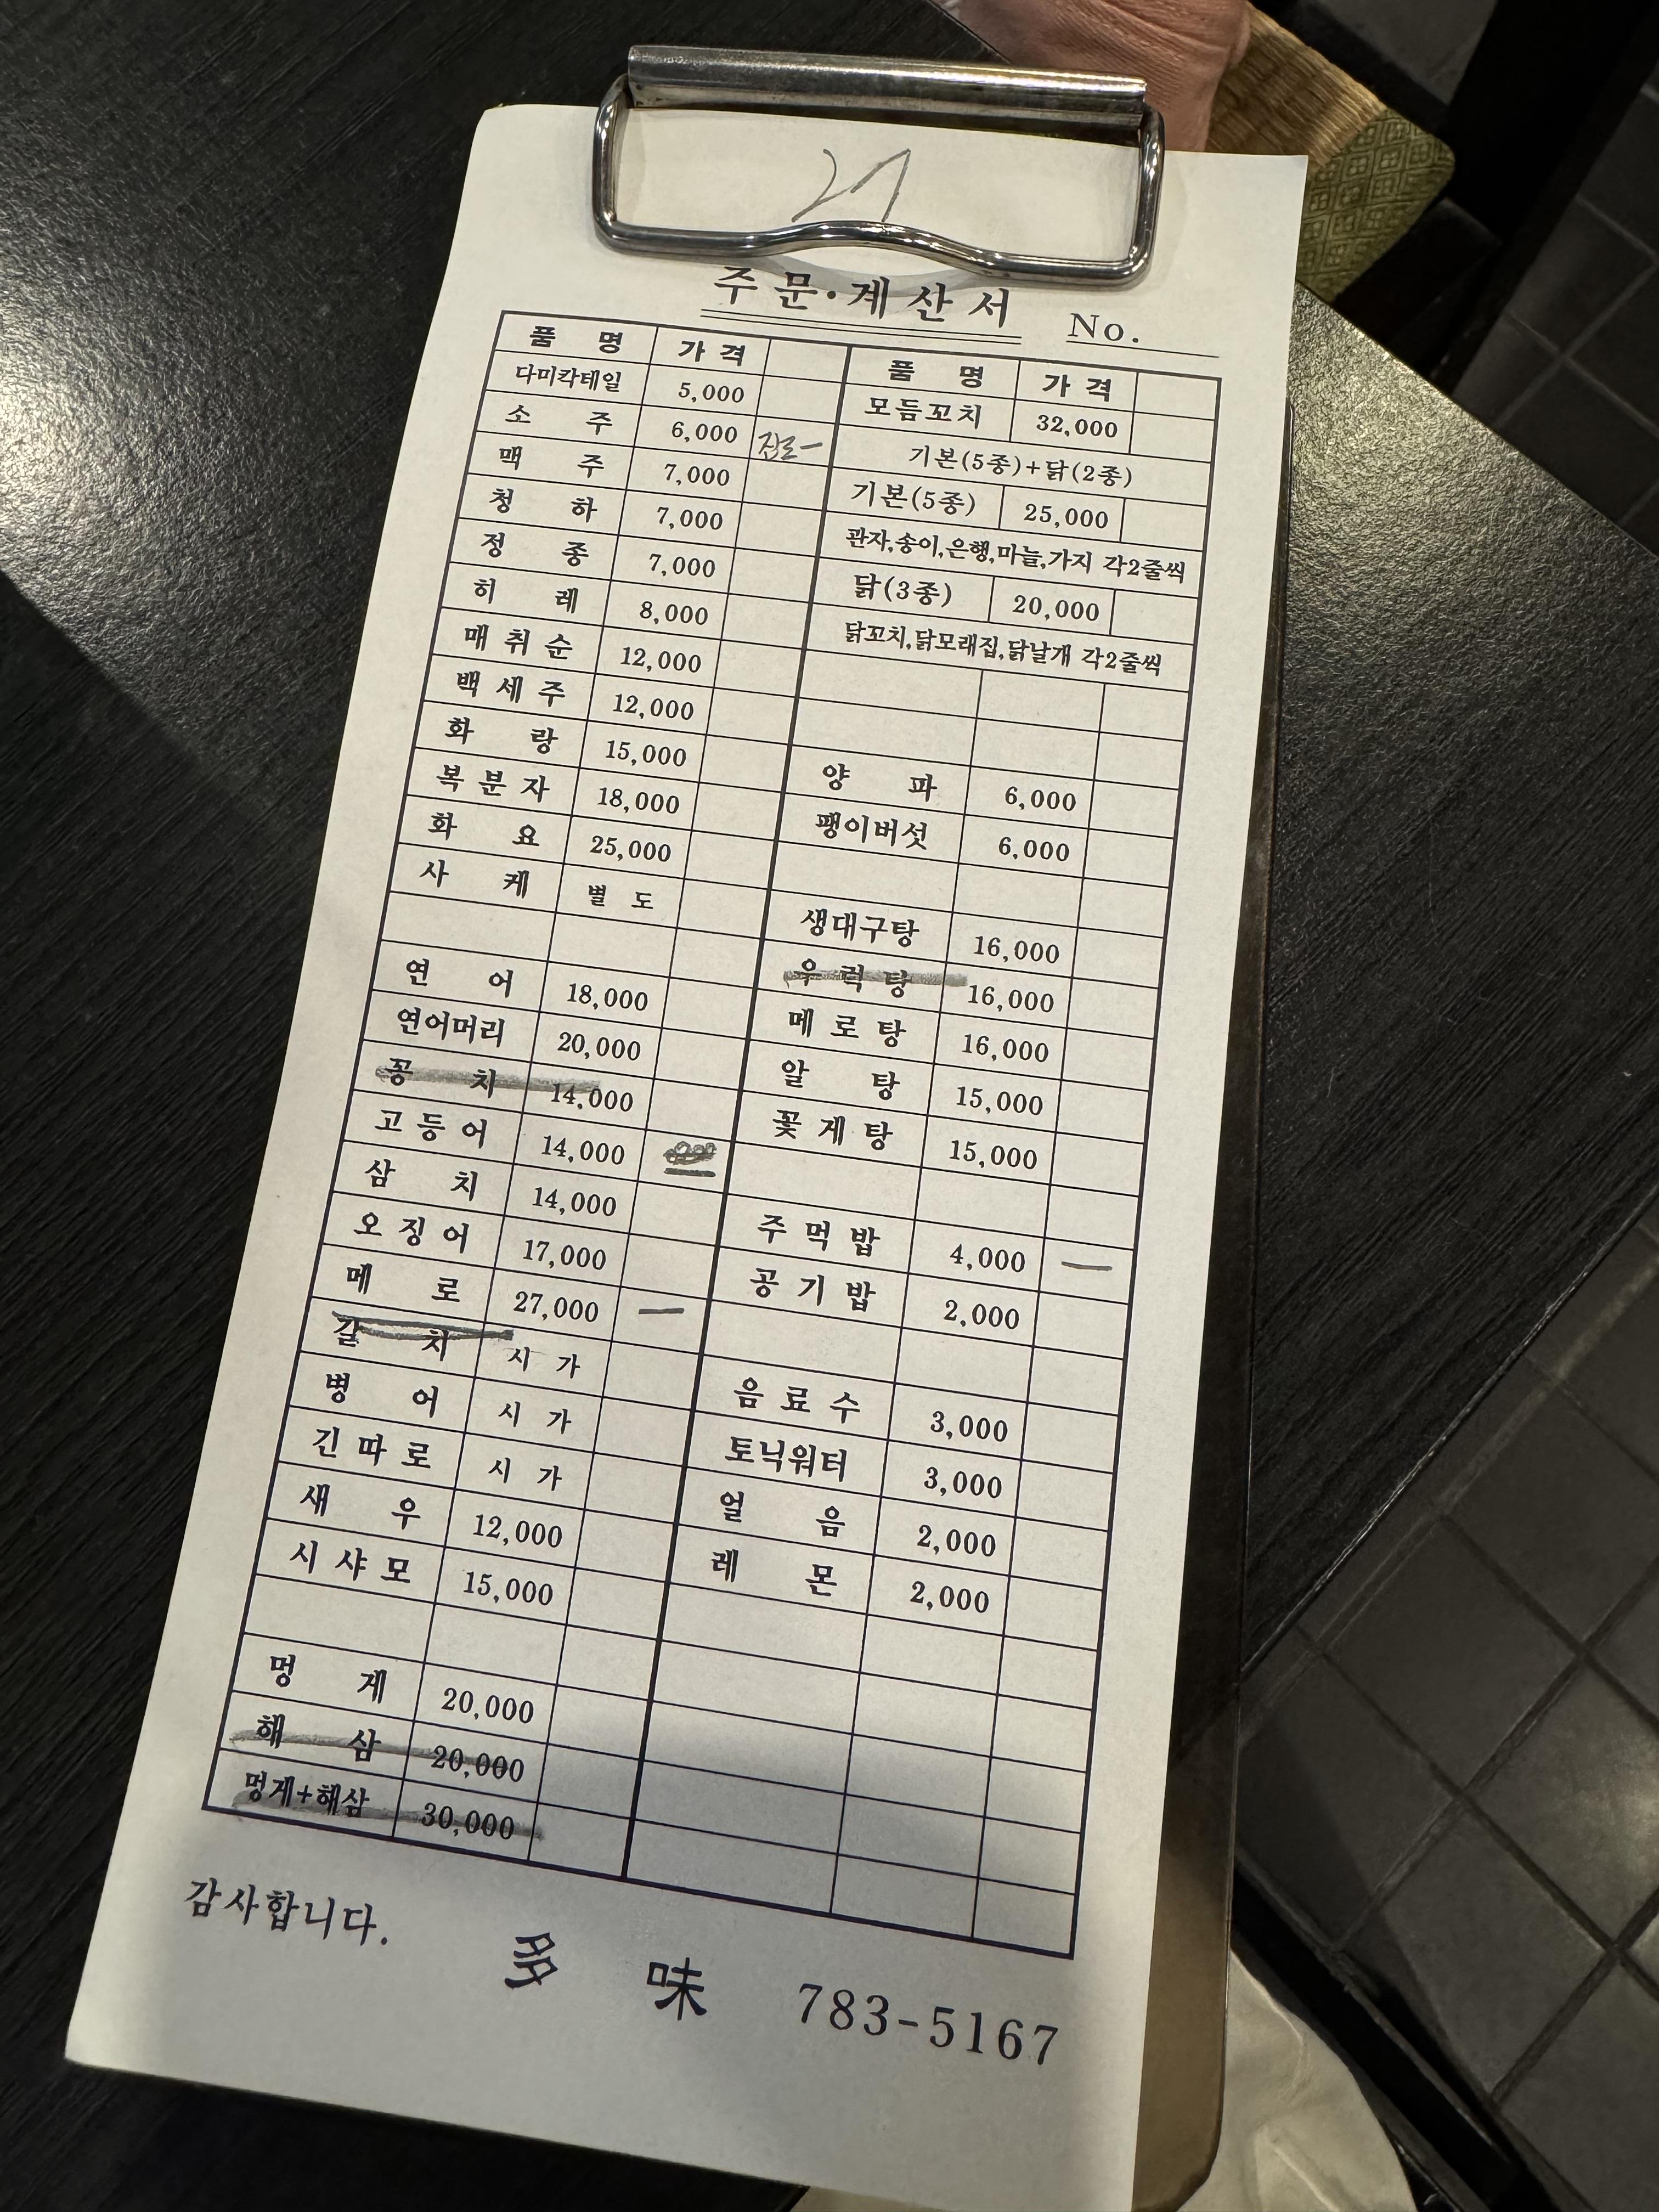 27
주문·계산서 No.
품 명 가 격
다미칵테일 5,000
소 주 6,000 진로 一
맥 주 7,000
청 하 7,000
정 종 7,000
히 레 8,000
매 취 순 12,000
백 세 주 12,000
화 랑 15,000
복 분 자 18,000
화 요 25,000
사 케 별 도
연 어 18,000
연어머리 20,000
꽁 치 14,000
고 등 어 14,000
삼 치 14,000
오 징 어 17,000
메 로 27,000 一
갈 치 시 가
병 어 시 가
긴 따 로 시 가
새 우 12,000
시 샤 모 15,000
멍 게 20,000
해 삼 20,000
멍게+해삼 30,000
품 명 가 격
모듬꼬치 32,000
기본(5종)+닭(2종)
기본(5종) 25,000
관자,송이,은행,마늘,가지 각2줄씩
닭(3종) 20,000
닭꼬치,닭모래집,닭날개 각2줄씩
양 파 6,000
팽이버섯 6,000
생대구탕 16,000
우 럭 탕 16,000
메 로 탕 16,000
알 탕 15,000
꽃 게 탕 15,000
주 먹 밥 4,000 一
공 기 밥 2,000
음 료 수 3,000
토닉워터 3,000
얼 음 2,000
레 몬 2,000
감사합니다.
多 味 783-5167